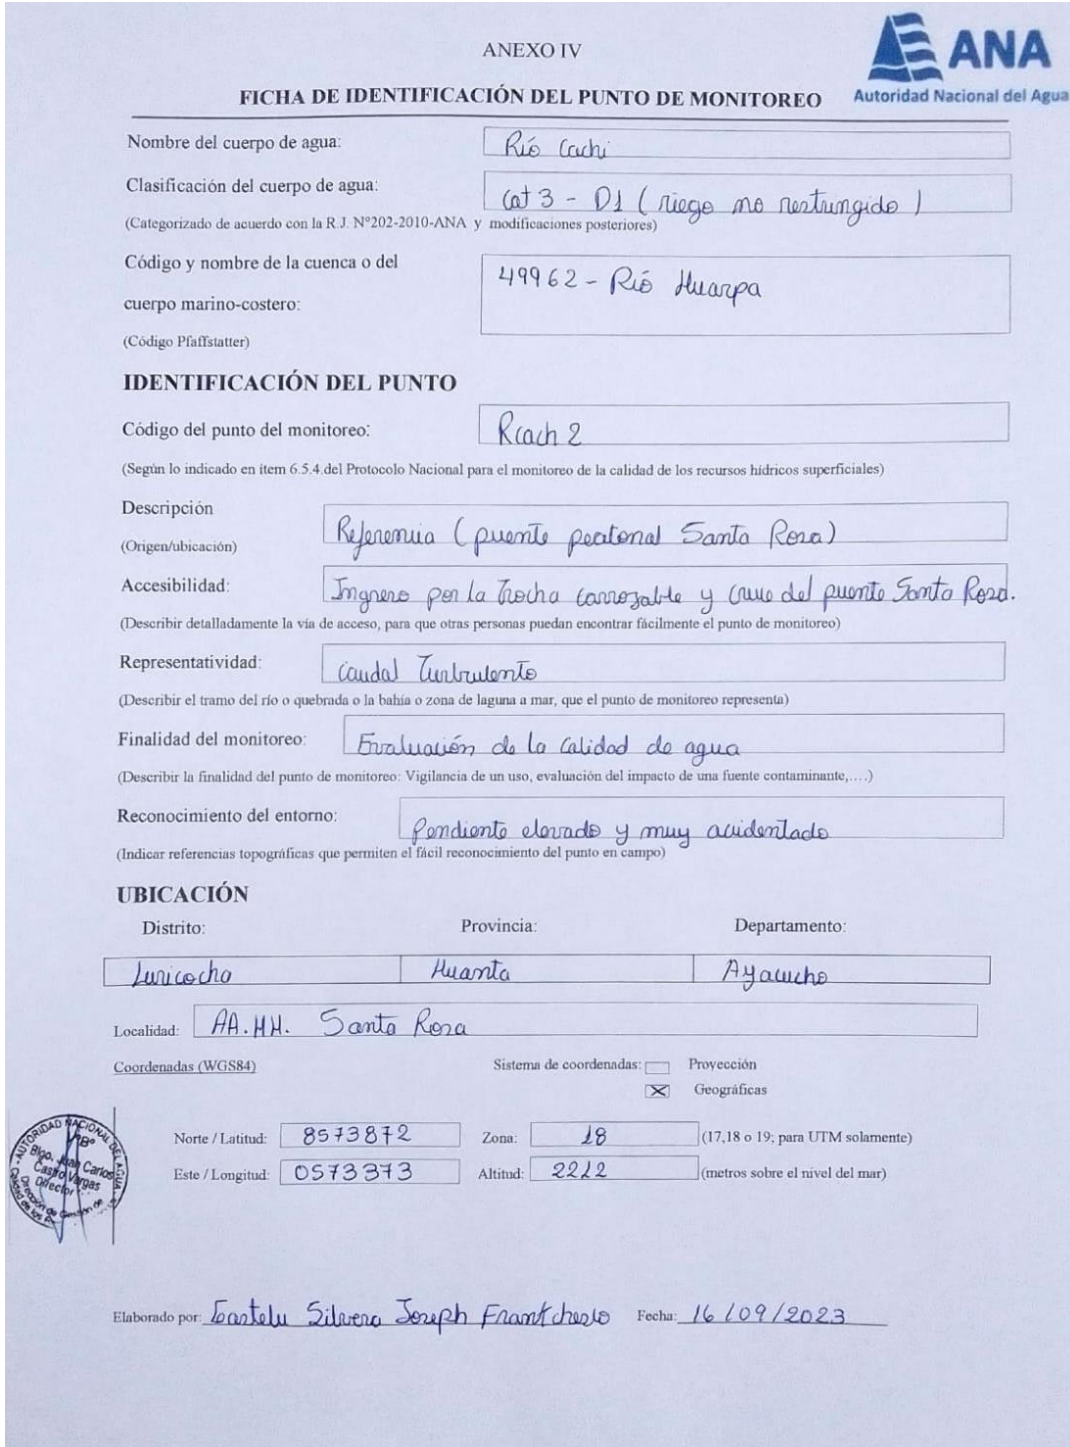 ANEXO IV
ANA
FICHA DE IDENTIFICACIÓN DEL PUNTO DE MONITOREO
Autoridad Nacional del Agua
Nombre del cuerpo de agua: Río Cachi
Clasificación del cuerpo de agua: Cat 3 - D1 (riego no restringido)
(Categorizado de acuerdo con la R.J. N°202-2010-ANA y modificaciones posteriores)
Código y nombre de la cuenca o del
49962 - Río Huarpa
cuerpo marino-costero:
(Código Pfaffstatter)
IDENTIFICACIÓN DEL PUNTO
Código del punto del monitoreo: Rcach 2
(Según lo indicado en ítem 6.5.4.del Protocolo Nacional para el monitoreo de la calidad de los recursos hídricos superficiales)
Descripción
Referencia (puente peatonal Santa Rosa)
(Origen/ubicación)
Accesibilidad: Ingreso por la trocha carrozable y cruce del puente Santa Rosa.
(Describir detalladamente la vía de acceso, para que otras personas puedan encontrar fácilmente el punto de monitoreo)
Representatividad: Caudal Turbulento
(Describir el tramo del río o quebrada o la bahía o zona de laguna a mar, que el punto de monitoreo representa)
Finalidad del monitoreo: Evaluación de la Calidad de agua
(Describir la finalidad del punto de monitoreo: Vigilancia de un uso, evaluación del impacto de una fuente contaminante,....)
Reconocimiento del entorno: Pendiente elevado y muy accidentado
(Indicar referencias topográficas que permiten el fácil reconocimiento del punto en campo)
UBICACIÓN
Distrito: Provincia: Departamento:
Luricocha Huanta Ayacucho
Localidad: AA.HH. Santa Rosa
Coordenadas (WGS84) Sistema de coordenadas: Proyección
X Geográficas
Norte / Latitud: 8573872 Zona: 18 (17,18 o 19; para UTM solamente)
Este / Longitud: 0573373 Altitud: 2212 (metros sobre el nivel del mar)
AUTORIDAD NACIONAL DEL AGUA
V°B°
Blgo. Juan Carlos
Castro Vargas
Director
Dirección de Gestión de
Elaborado por: Gastelu Silvera Joseph Frantchesco Fecha: 16/09/2023